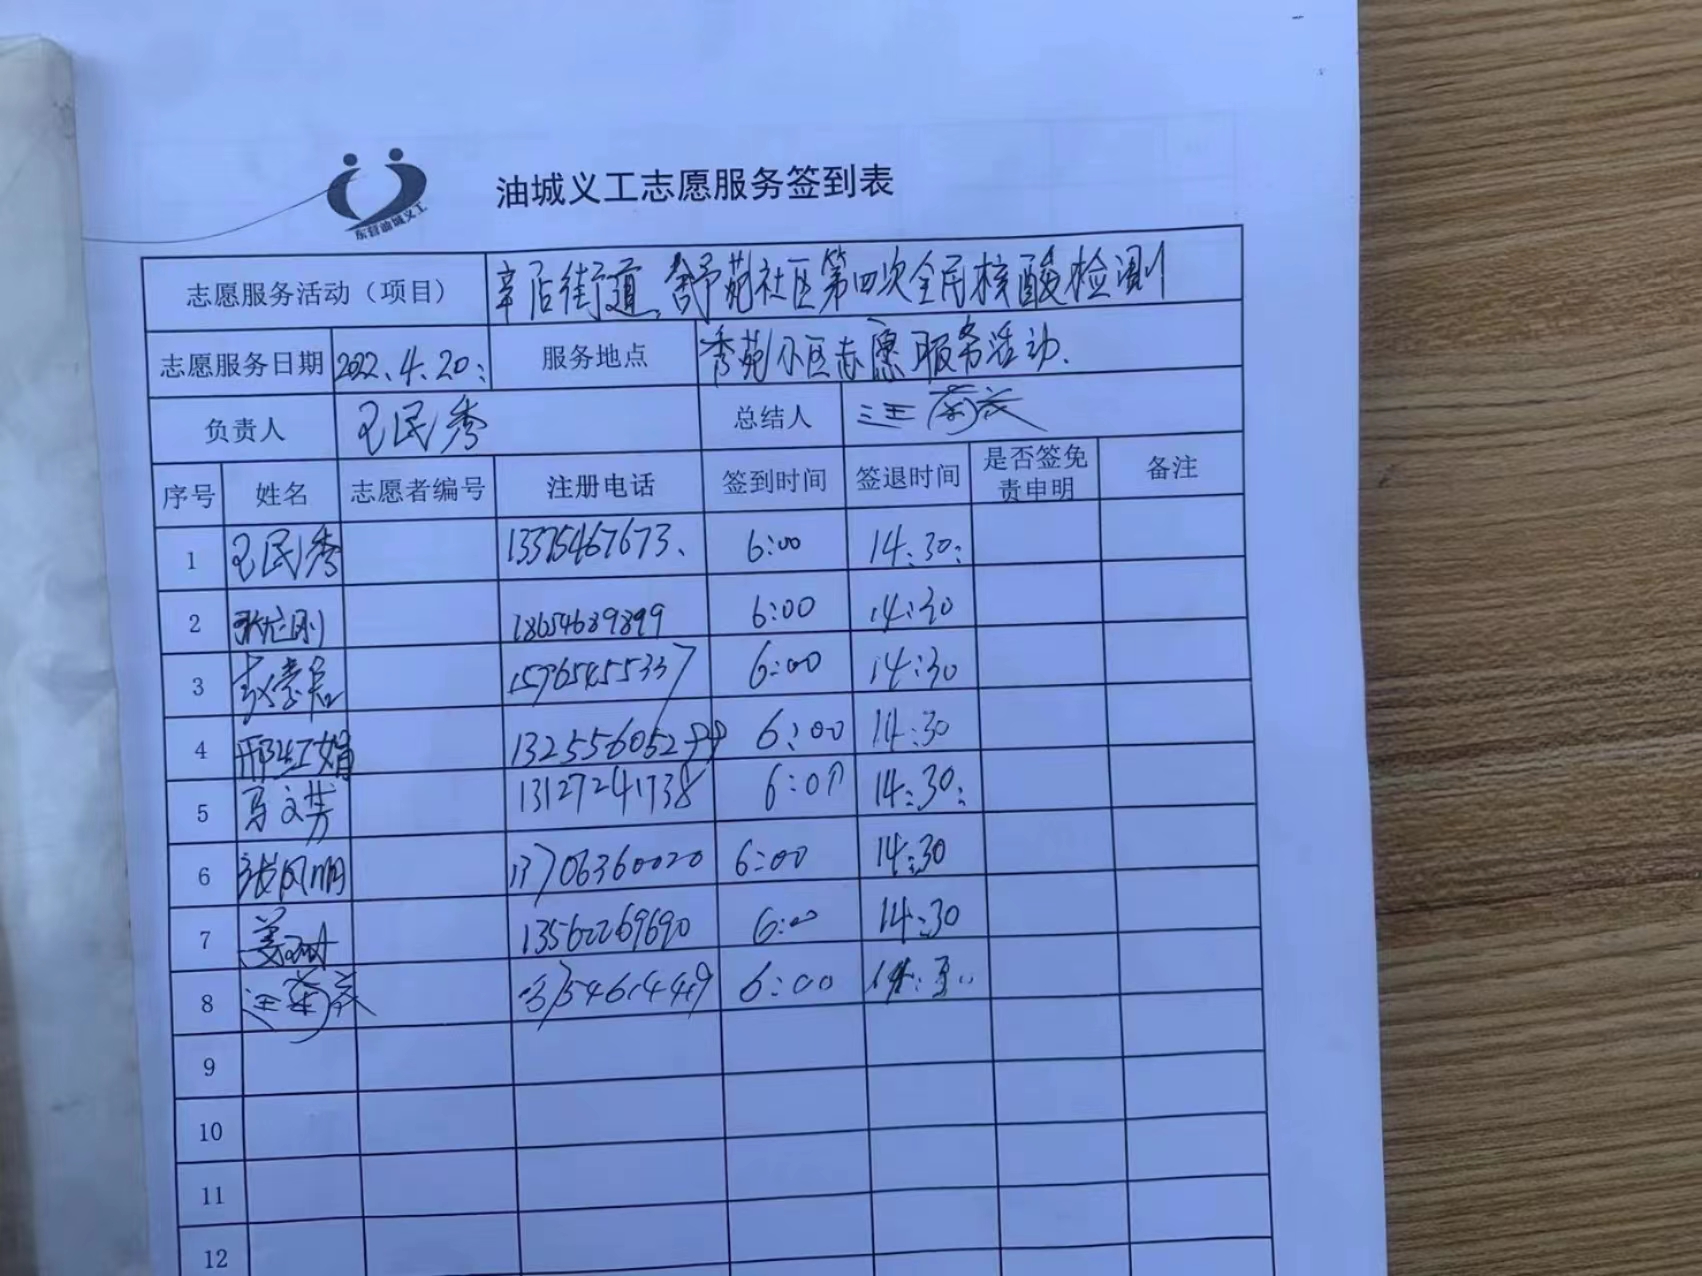 东营油城义工
油城义工志愿服务签到表
志愿服务活动（项目） 辛店街道、舒苑社区第四次全民核酸检测
志愿服务日期 2022.4.20: 服务地点 秀苑小区志愿服务活动.
负责人 王民秀 总结人 汪菊
序号 姓名 志愿者编号 注册电话 签到时间 签退时间 是否签免责申明 备注
1 王民秀 13375467673、 6:00 14:30:
2 刚 18654689899 6:00 14:30
3 15965455337 6:00 14:30
4 邢红娟 132556052 6:00 14:30
5 马文芳 13127241738 6:00 14:30:
6 张凤明 13706360020 6:00 14:30
7 姜 13562269690 6:00 14:30
8 汪菊 6:00
9
10
11
12